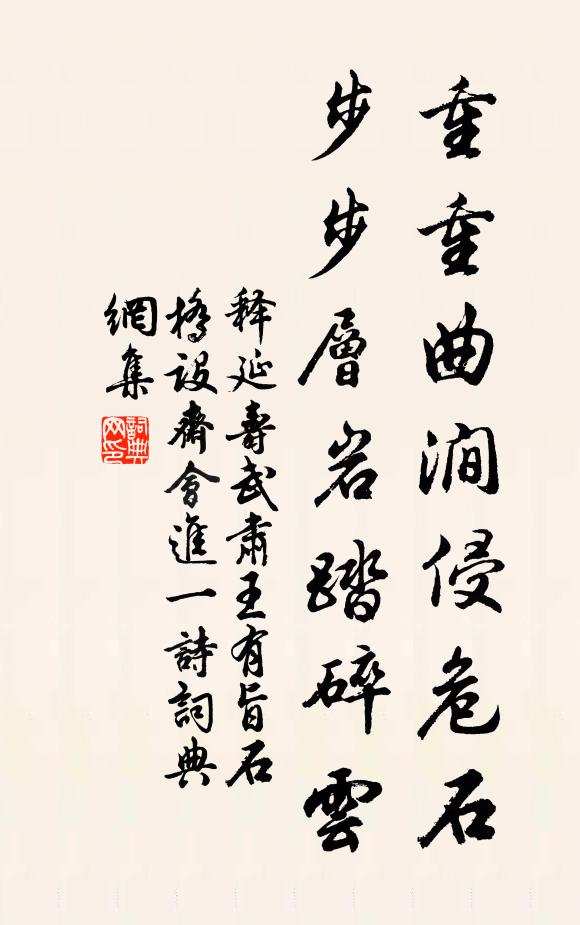 重重曲澗侵危石
步步層岩踏碎雲
释延壽武肅王有旨石
橋設齋會進一詩詞典
網集
詞典
网印